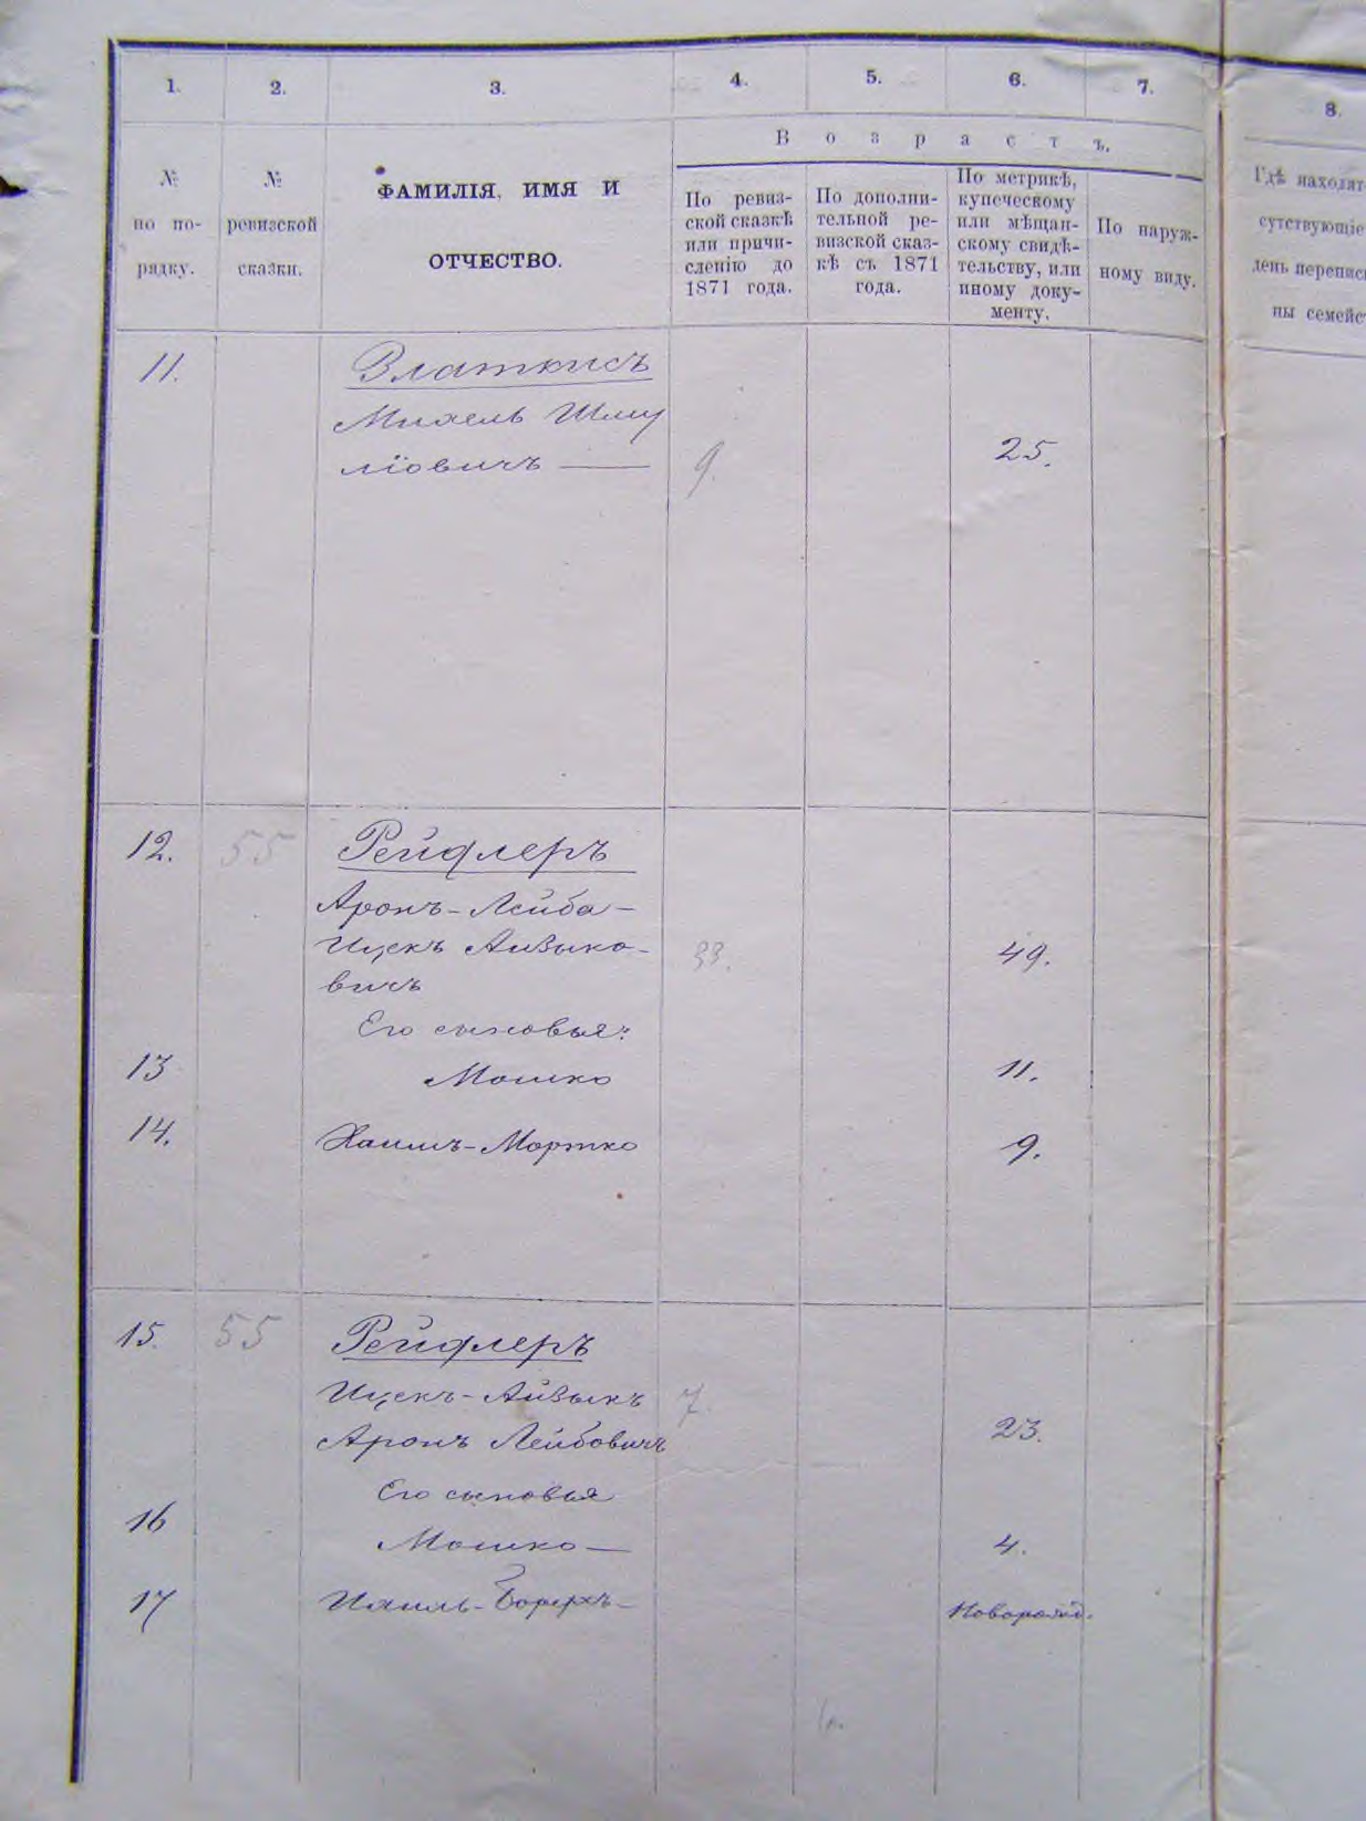 1. 2. 3. 4. 5. 6. 7. 8.
Возрастъ.
№ по по-
рядку.
№
ревизской
сказки.
ФАМИЛІЯ, ИМЯ И
ОТЧЕСТВО.
По ревиз-
ской сказкѣ
или причи-
сленію до
1871 года.
По дополни-
тельной ре-
визской сказ-
кѣ съ 1871
года.
По метрикѣ,
купеческому
или мѣщан-
скому свидѣ-
тельству, или
иному доку-
менту.
По наруж-
ному виду.
Гдѣ находят
сутствующіе
день перепис
ны семейс
11. Златкисъ
Михель Шму
ліовичъ — 9. 25.
12. 55 Рейфлеръ
Аронъ-Лейба-
Ицекъ Айзыко- 33. 49.
вичъ
Его сыновья:
13 Мошко 11.
14. Хаимъ-Мортко 9.
15. 55 Рейфлеръ
Ицекъ-Айзыкъ 7.
Аронъ Лейбовичъ 23.
Его сыновья
16 Мошко — 4.
17 Ихиль-Борухъ- Новорожд.